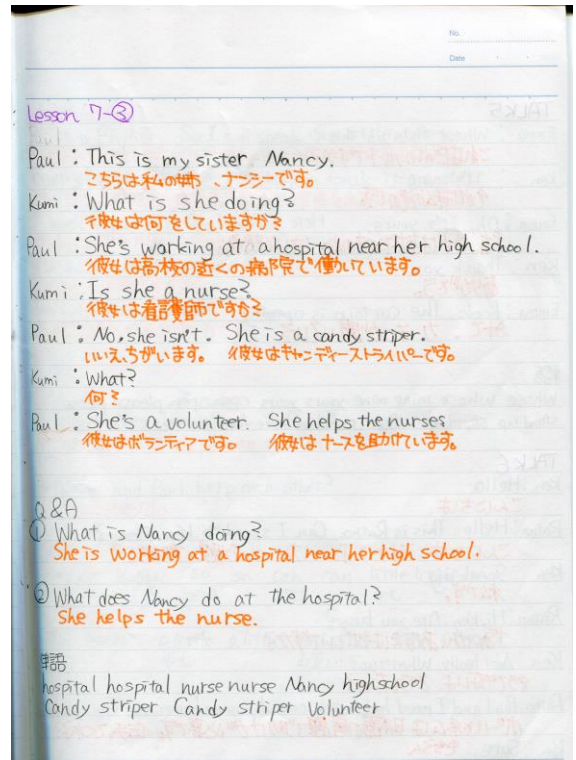 No.
Date
Lesson 7-③
Paul : This is my sister Nancy.
こちらは私の姉、ナンシーです。
Kumi : What is she doing?
彼女は何をしていますか?
Paul : She's working at a hospital near her high school.
彼女は高校の近くの病院で働いています。
Kumi : Is she a nurse?
彼女は看護師ですか?
Paul : No, she isn't. She is a candy striper.
いいえ、ちがいます。 彼女はキャンディーストライパーです。
Kumi : What?
何?
Paul : She's a volunteer. She helps the nurses.
彼女はボランティアです。 彼女はナースを助けています。
Q&A
① What is Nancy doing?
She is working at a hospital near her high school.
② What does Nancy do at the hospital?
She helps the nurse.
単語
hospital hospital nurse nurse Nancy highschool
Candy striper Candy striper Volunteer